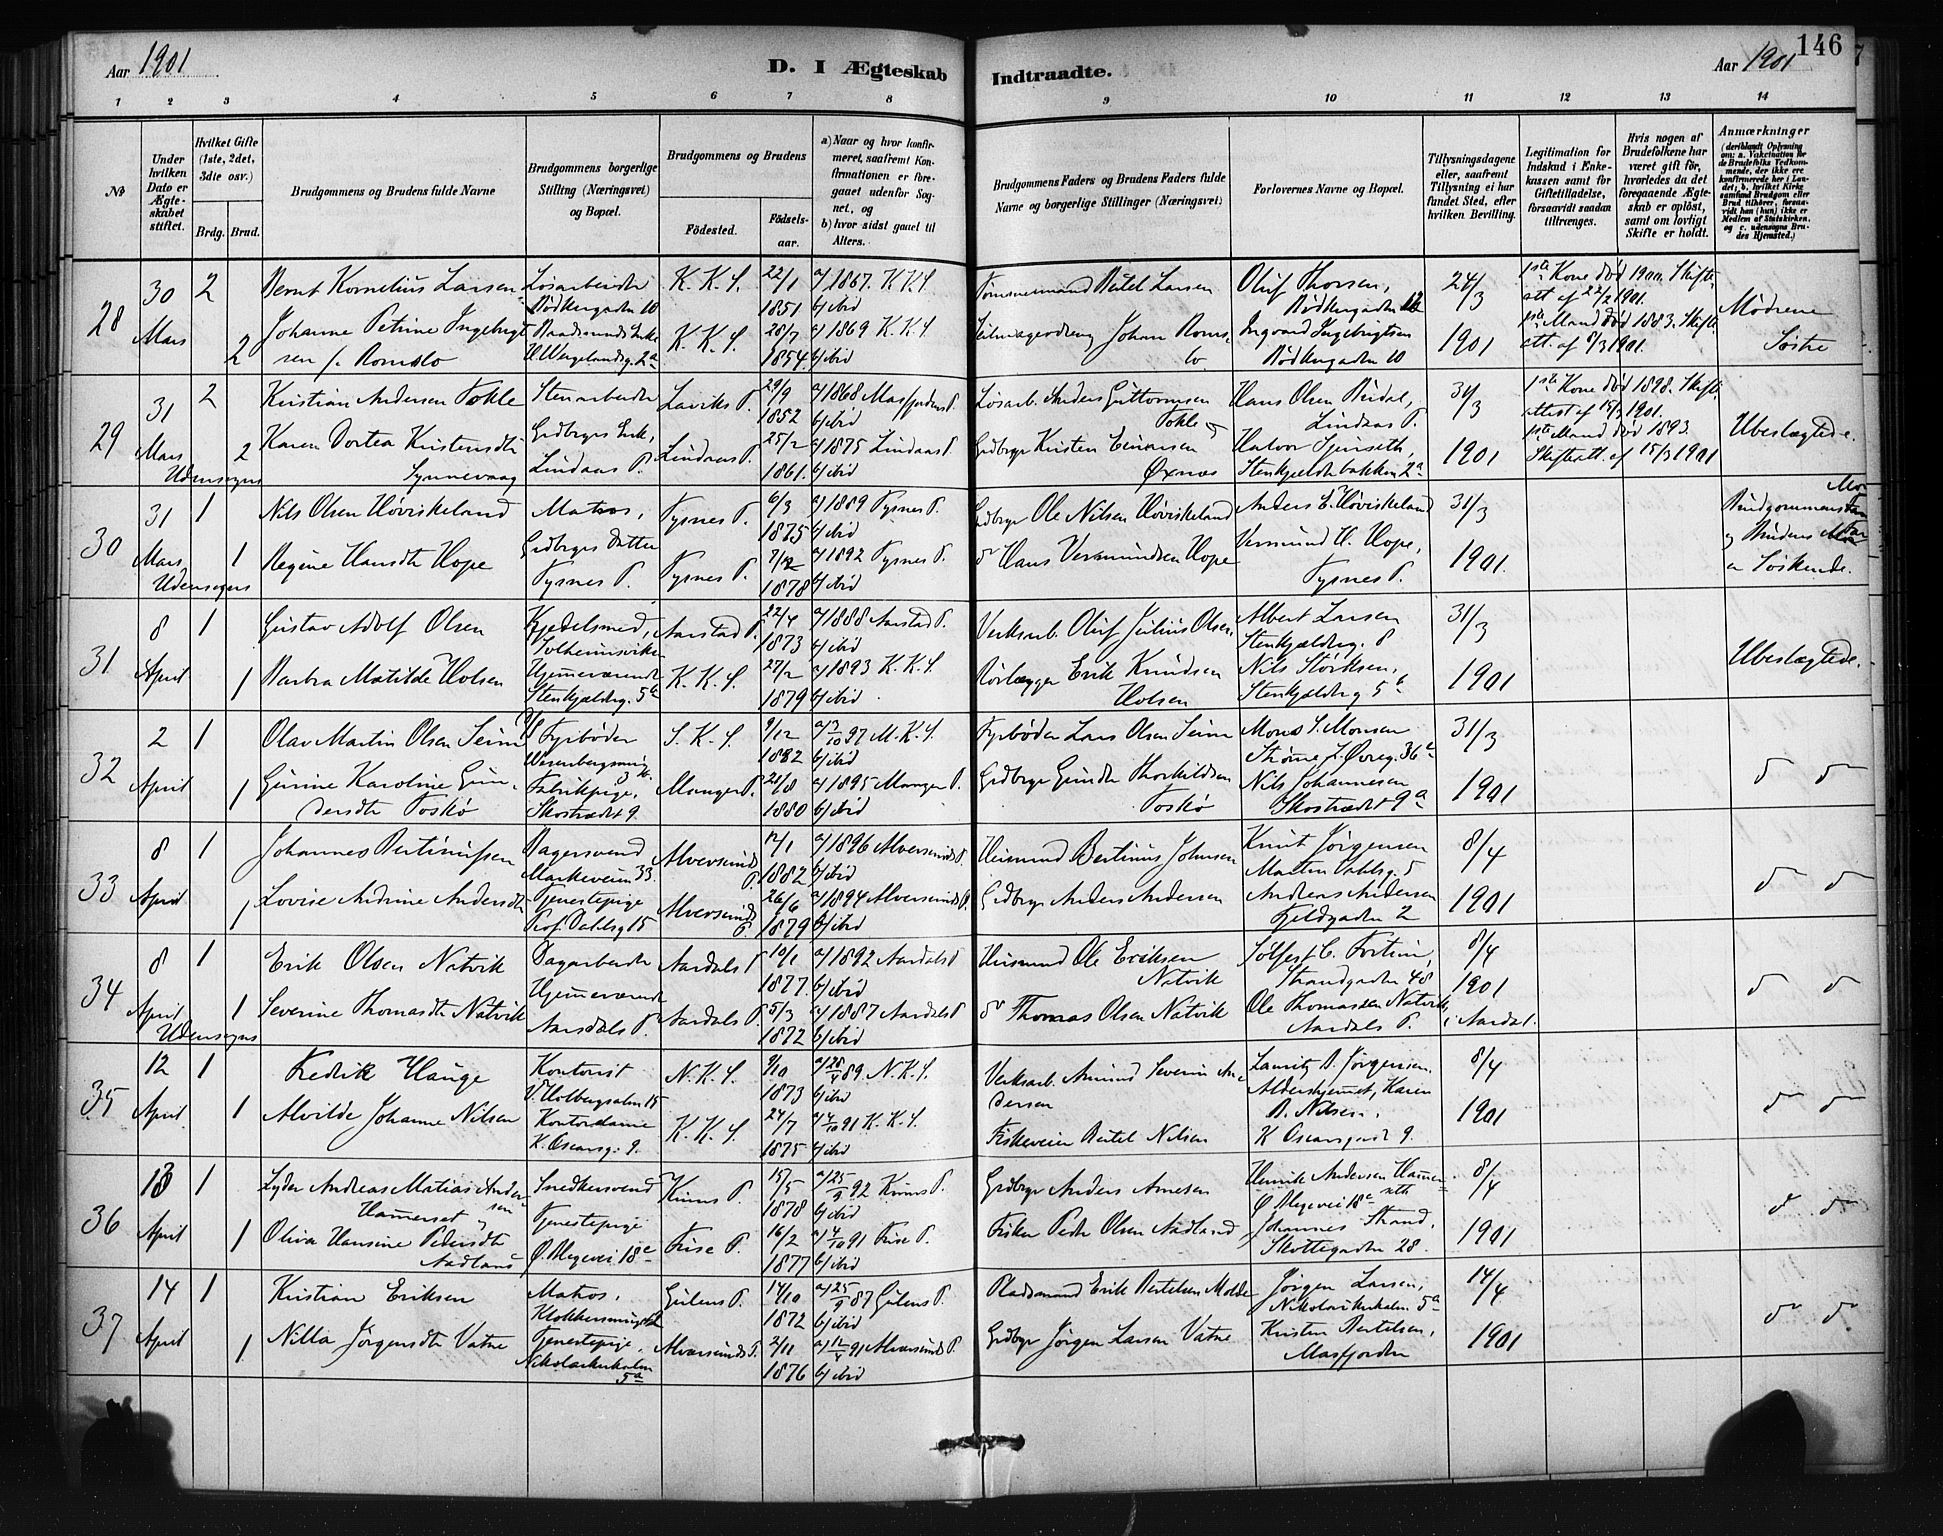 Aar 1901
D. I Ægteskab Indtraadte.
Aar 1901
146
1 2 3 4 5 6 7 8 9 10 11 12 13 14
No
Under hvilken Dato er Ægteskabet stiftet.
Hvilket Gifte (1ste, 2det, 3die osv.)
Brdg. Brud.
Brudgommens og Brudens fulde Navne
Brudgommens borgerlige Stilling (Næringsvei) og Bopæl.
Brudgommens og Brudens
Födested.
Födselsaar.
a) Naar og hvor konfirmeret, saafremt Konfirmationen er foregaaet udenfor Sognet, og
b) hvor sidst gaaet til Alters.
Brudgommens Faders og Brudens Faders fulde Navne og borgerlige Stillinger (Næringsvei)
Forlovernes Navne og Bopæl.
Tillysningsdagene eller, saafremt Tillysning ei har fundet Sted, efter hvilken Bevilling.
Legitimation for Indskud i Enkekassen samt for Giftetilladelse, forsaavidt saadan tiltrænges.
Hvis nogen af Brudefolkene har været gift för, hvorledes da det foregaaende Ægteskab er oplöst, samt om lovligt Skifte er holdt.
Anmærkninger
(deriblandt Oplysning om: a. Vakcination for de Brudefolks Vedkommende, der ikke ere konfirmerede her i Landet; b. hvilket Kirkesamfund Brudgom eller Brud tilhörer, forsaavidt han (hun) ikke er Medlem af Statskirken, og c. udensogns Brudes Hjemsted.)
28 30 Mars 2 2
Bernt Kornelius Larsen
Løsarbeider Bødkergaden 10
K. K. S. 22/1 1851
a/ 1867. K.K.S. b/ ibid
Tømmermand Bertel Larsen
Oluf Thorsen, Bødkergaden 12
24/3 1901
1ste Kone død 1900. Skifteatt. af 22/2 1901.
Johanne Petrine Ingebrigtsen f. Romslo
H. Wergelandsg. 2a
K. K. S. 28/7 1854.
a/ 1869 K.K.S. b/ ibid
Johan Romslo
Ingvard Ingebrigtsen Bødkergaden 10
1ste Mand død 1883. Skifteatt. af 8/3 1901.
Mødrene Søstre
29 31 Mars 2 2 Udensogns
Kristian Andersen Tokle
Stenarbeider
Laviks P. 29/9 1852
a/ 1868 Masfjordens P. b/ ibid
Løsarb. Anders Guttormsen Tokle
Hans Olsen Lindaas P.
31/3 1901
1ste Kone død 1898. Skifteattest af 15/3 1901.
Karen Dortea Kristensdtr Synnevaag
Grdbrgrs Enke, Lindaas P.
Lindaas P. 25/2 1861.
a/ 1875 Lindaas P. b/ ibid
Grdbrgr Kristen Einarsen Øxnes
Halvor Stenkjelderbakken 2a
1ste Mand død 1893. Skifteatt. af 15/3 1901
Ubeslægtede.
30 31 Mars 1 1 Udensogns
Nils Olsen Høviskeland
Matros,
Tysnes P. 6/3 1875
a/ 1889 Tysnes P. b/ ibid
Grdbrgr Ole Nilsen Høviskeland
Anders E. Høviskeland
31/3 1901.
Regine Hansdtr Hope
Grdbrgrs Datter Tysnes P.
Tysnes P. 7/12 1878
a/ 1892 Tysnes P. b/ ibid
do Hans Vermundsen Hope
Vermund H. Hope, Tysnes P.
Brudgommens Mor og Brudens Far er Søskende.
31 8 April 1 1
Gustav Adolf Olsen
Kjedelsmed, Solheimsviken
Aarstad P. 22/4 1873
a/ 1888 Aarstad P. b/ ibid
Verksarb. Oluf Julius Olsen
Albert Larsen Stenkjælderg. 8
31/3 1901
Barbra Matilde Holsen
Hjemmeværende Stenkjælderg. 5b
K. K. S. 27/2 1879
a/ 1893 K.K.S. b/ ibid
Rørlægger Erik Knudsen Holsen
Nils Størksen, Stenkjælderg 5b
Ubeslægtede.
32 2 April 1 1
Olav Martin Olsen Seim
Fyrbøder Wesenbergsmug
S. K. S. 9/12 1882
a/ 3/10 97 M.K.S. b/ ibid
Fyrbøder Lars Olsen Seim
Mons S. Monsen Strøme Z. Øvreg. 36c
31/3 1901
Gurine Karoline Gundersdtr Toskø
Fabrikpige, Skostrædet 9.
Manger P. 21/8 1880
a/ 1895 Manger P. b/ ibid
Grdbrgr Gunder Thorkildsen Toskø
Nils Johannesen Skostrædet 9a
do do
33 8 April 1 1
Johannes Bertinussen
Bagersvend Markeveien 33
Alversunds P. 12/1 1882
a/ 1896 Alversunds P. b/ ibid
Husmand Bertinus Johnsen
Knut Jørgensen Martin Vahlsg. 5
8/4 1901
Lovise Andrine Andersdtr
Tjenestepige Prof. Dahlsg 15
Alversund P. 26/6 1879
a/ 1894 Alversunds P. b/ ibid
Grdbrgr Anders Andersen
Andreas Andersen 2
do do
34 8 April 1 1 Udensogns
Erik Olsen Natvik
Dagarbeider
Aardals P 10/1 1877.
a/ 1892 Aardals P b/ ibid
Husmand Ole Eriksen Natvik
Sølfest C. Strandgaden 48
8/4 1901
Severine Thomasdtr Natvik
Hjemmeværende Aardals P.
Aardals P. 5/3 1872
a/ 1887 Aardals P b/ ibid
do Thomas Olsen Natvik
Ole Thomassen Natvik, Aardals P.
i Aardal.
do do
35 12 April 1 1
Fredrik Hauge
Kontorist V. Holbergsalm 15
N. K. S. 9/10 1873
a/ 28/4 89 N.K.S. b/ ibid
Verksarb. Amund Severin Andersen
Lauritz B. Jørgensen Aldershjemmet, Karen B. Nilsen, K Oscarsgade 9.
8/4 1901
Alvilde Johanne Nilsen
Kontordame K. Oscarsg. 9.
K. K. S. 24/7 1875
a/ 4/10 91 K.K.S. b/ ibid
Fiskeveier Bertel Nilsen
do do
36 13 April 1 1
Lyder Andreas Matias Andersen Hammerset
Snedkersvend
Kinns P. 15/5 1878
a/ 25/9 92 Kinns P. b/ ibid
Grdbrgr Anders Arnesen
Henrik Andersen Ø Blegevei 18c
8/4 1901
Oliva Hansine Pedersdtr Nadland
Tjenestepige Ø. Blegevei 18c
Førse P. 16/2 1877
a/ 4/10 91 Førse P. b/ ibid
Fisker Peder Olsen Nadland
Johannes Strand, Skottegaden 28.
do do
37 14 April 1 1
Kristian Eriksen
Matros, Klokkersmuget 2
Gulens P. 14/10 1872
a/ 25/9 87 Gulens P. b/ ibid
Pladsmand Erik Bertelsen Molde
Jørgen Larsen, Nikolaikirkealm. 5a
14/4 1901
Nilla Jørgensdtr Vatne
Tjenestepige, Nikolaikirkealm 5a
Alversunds P. 2/11 1876
a/ 12/4 91 Alversunds P. b/ ibid
Grdbrgr Jørgen Larsen Vatne
Kristen Bertelsen, Masfjorden
do do